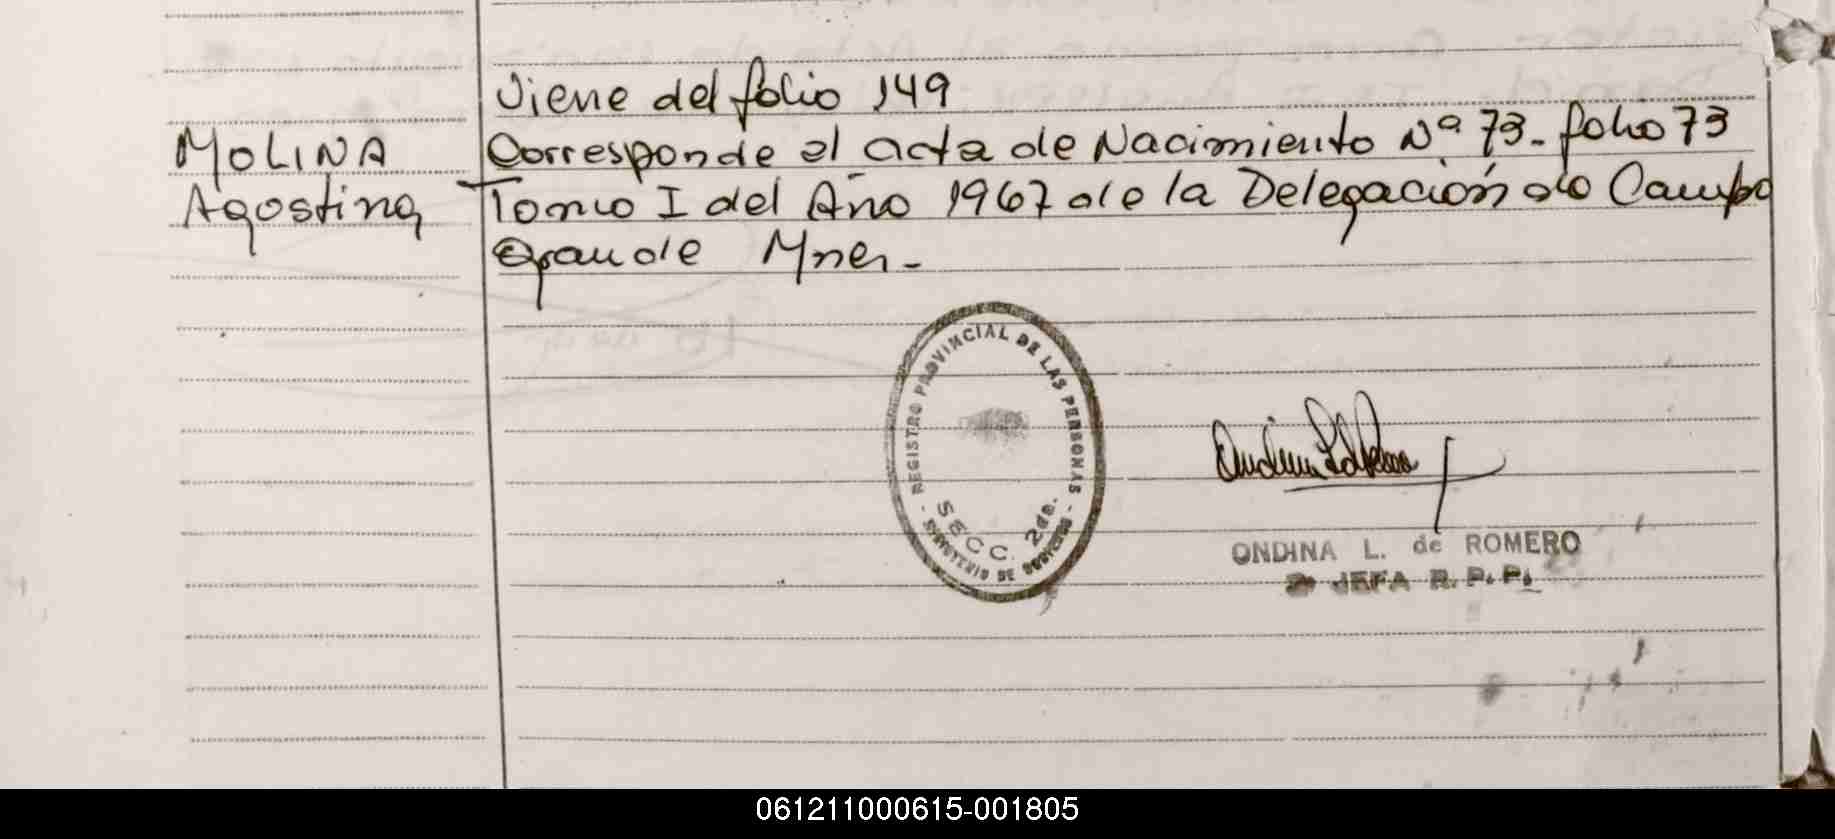 Viene del folio 149
MOLINA
Corresponde al acta de Nacimiento Nº 73- folio 73
Agostina
Tomo I del Año 1967 de la Delegación de Campo
Grande Mnes.-
REGISTRO PROVINCIAL DE LAS PERSONAS
SECC. 2da.
- MINISTERIO DE GOBIERNO -
ONDINA L. de ROMERO
JEFA R. P. P.
061211000615-001805